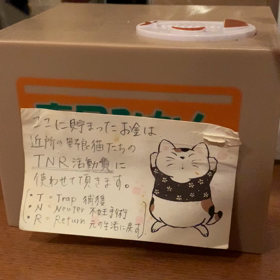 ここに貯まったお金は
近所の野良猫たちの
TNR活動費に
使わせて頂きます。
・T=Trap 捕獲
・N=Neuter 不妊手術
・R=Return 元の生活に戻す